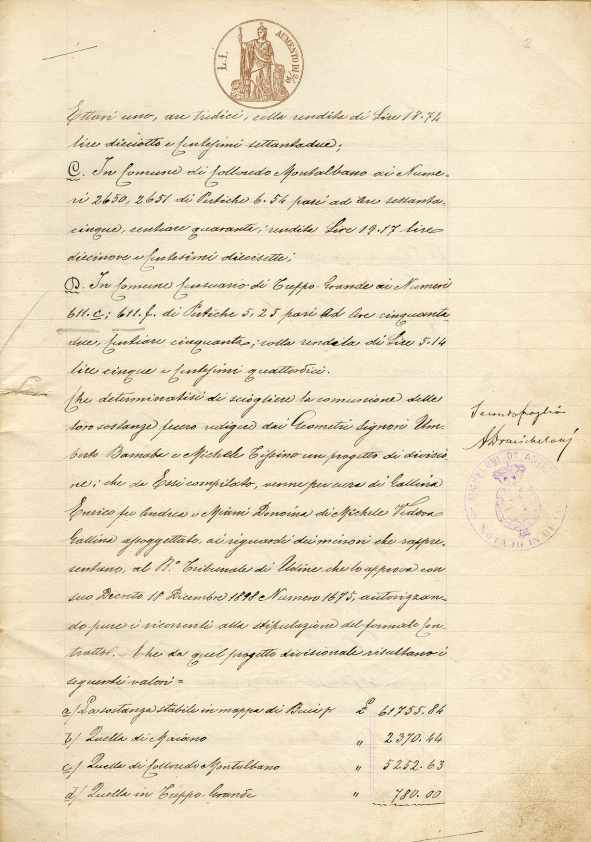 L. 1.
AUMENTO DI 2/10
Ettari uno, are tredici, colla rendita di Lire 18.72
lire dieciotto e Centesimi settantadue;
C. In Comune di Colloredo Montalbano ai Nume-
ri 2650, 2651 di Pertiche 6.54 pari ad Are sessanta
cinque, centiare quaranta; rendita Lire 19.17 lire
diecinove e Centesimi diecisette;
D. In Comune Censuario di Treppo Grande ai Numeri
611.c; 611.f. di Pertiche 5,25 pari ad Are cinquanta
due, Centiare cinquanta; colla rendita di Lire 5.14
lire cinque e Centesimi quattordici.
Che determinatisi di sciogliere la comunione delle
loro sostanze, fecero redigere dai Geometri Signori Um-
berto Barnaba e Michele Tissino un progetto di divisio
ne; che da Essi compilato, venne per cura di Gallina
Enrico fu Andrea e Miani Domina di Michele Vedova
Gallina assoggettato, ai riguardi dei minori che rappre-
sentano, al R.o Tribunale di Udine che lo approva con
suo Decreto 18 Dicembre 1898 Numero 1675, autorizzan-
do pure i ricorrenti alla stipulazione del formale Con-
tratto. - Che da quel progetto divisionale risultano i
seguenti valori =
a/ La sostanza stabile in mappa di £ 61755.84
b/ Quella di Maiano " 2370.44
c/ Quella di Colloredo Montalbano " 5252.63
d/ Quella in Treppo Grande " 780.00
Secondo foglio
NOTAJO IN